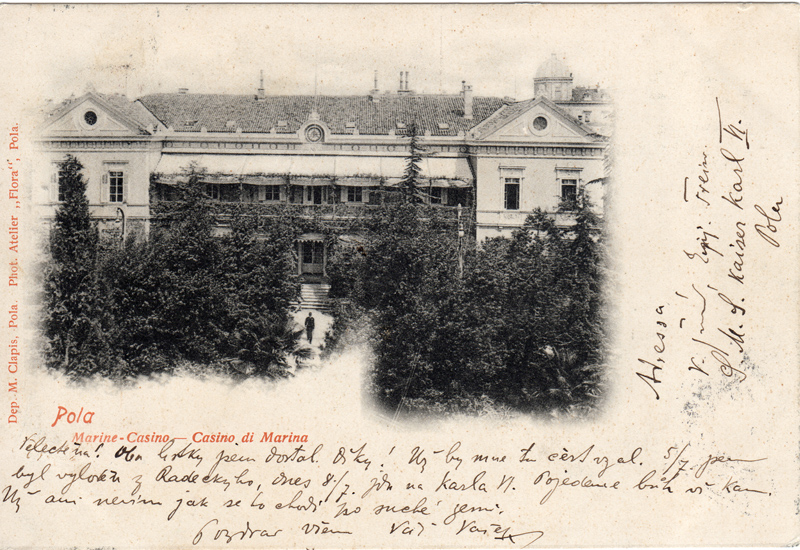 Dep. M. Clapis, Pola. Phot. Atelier „Flora“, Pola.
Pola
Marine-Casino — Casino di Marina
Velectěná! Oba lístky jsem dostal. Díky! Už by mne tu čert vzal. 5/7 jsem
byl vyloděn z Radeckyho, dnes 8/7. jdu na Karla VI. Pojedeme bůh ví kam.
Už ani nevím jak se to chodí po suché zemi.
Pozdrav všem Váš
Adressa
S. M. S. Kaiser Karl VI.
Pola